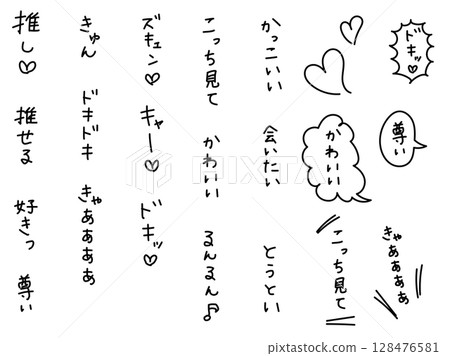 ドキッ♡
尊い
きゃあぁぁぁ
かわいい
こっち見て
かっこいい
会いたい
とうとい
こっち見て
かわいい
るんるん♫
ズキュン♡
キャー♡
ドキッ♡
きゅん
ドキドキ
きゃあぁぁぁぁ
推し♡
推せる
好きっ
尊い
PIXTA
pixta.jp - 128476581